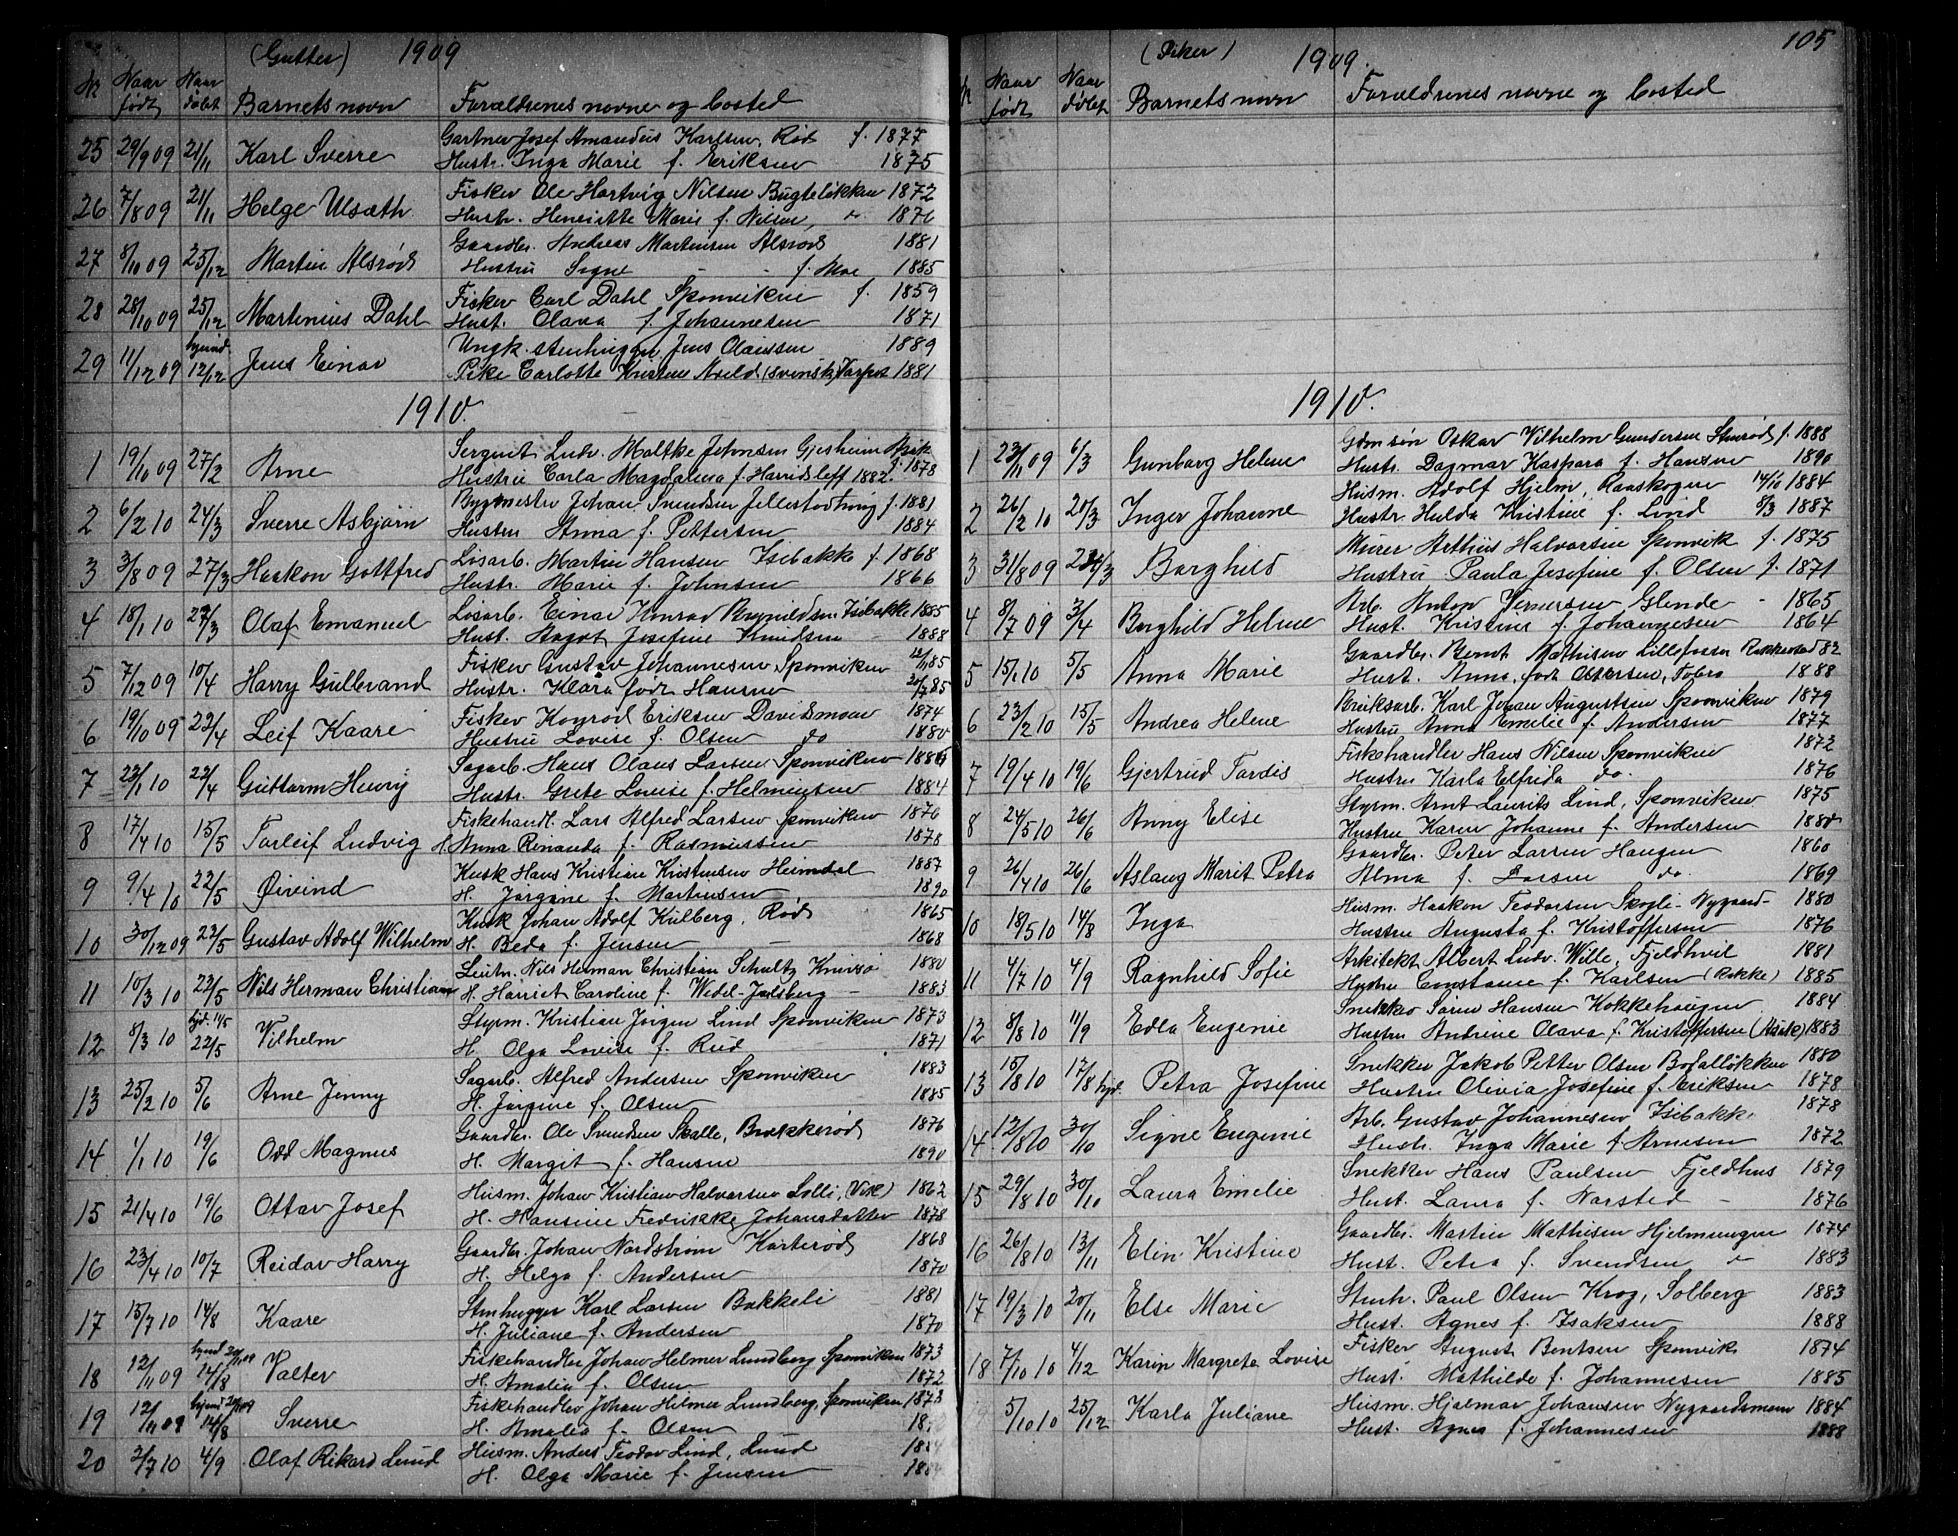 (Gutter) 1909
Nr Naar født Naar døbt Barnets navn Forældrenes navne og bosted
25 29/9 09 21/11 Karl Sverre Gartner Josef Amandus Karlsen, Rød f. 1877
Hustr. Inga Marie f. Eriksen 1875
26 7/8 09 21/11 Helge Ulsæth Fisker Ole Hartvig Nilsen Bugteløkken 1872
Hustr. Henriette Marie f. Nilsen, 1876
27 8/10 09 25/12 Martin Alsrød Gaardbr. Andreas Martinsen Alsrød 1881
Hustru Signe - - f. Moe 1885
28 28/10 09 25/12 Martinius Dahl Fisker Carl Dahl Sponviken f. 1859
Hust. Olava f. Johannesen 1871
29 11/12 09 12/12 Jens Einar Ungk. stenhugger Jens Olaussen 1889
Pike Carlotte Kristine Axeld (svensk) 1881
1910.
1 19/10 09 27/2 Arne Sergent Ludv. Moltke Johnsen Gjesheim f. 1878
Hustru Carla Magdalena f. Harridsleff 1882.
2 6/2 10 24/3 Sverre Asbjørn Bygmester Johan Svendsen f. 1881
Hustru Anna f. Pettersen 1884
3 3/8 09 27/3 Haakon Gottfred Løsarb. Martin Hansen Isebakke f. 1868
Hustr. Marie f. Johnsen 1866
4 18/1 10 27/3 Olaf Emanuel Løsarb. Einar Konrad Brynildsen Isebakke 1885
Hust. Aagot Josefine Knudsen 1888
5 7/12 09 10/4 Harry Gulbrand Fisker Gustav Johannesen Sponviken 85
Hustr. Klara født Hansen 85
6 19/10 09 22/4 Leif Kaare Fisker Konrad Eriksen Davidsmoen 1874
Hustru Lovise f. Olsen do 1880
7 23/1 10 22/4 Guttorm Henry Sagarb. Hans Olaus Larsen Sponviken
Hustr. Grete Lovise f. Helmersen 1884
8 17/4 10 15/5 Torleif Ludvig Fiskehandl. Lars Alfred Larsen Sponviken 1876
H. Anna Renanda f. Rasmussen 1878
9 9/4 10 22/5 Øivind Kusk Hans Kristian Kristensen Heimdal 1887
H. Jørgine f. Martinsen 1890
10 30/12 09 22/5 Gustav Adolf Wilhelm Kusk Johan Adolf Kulberg, Rød 1865
H. Beda f. Jensen - 1868
11 10/3 10 22/5 Nils Herman Christian Leutn. Nils Herman Christian Schultz Knivsø 1880
H. Harriet Caroline f. Wedel-Jarlsberg - 1883
12 8/3 10 hjd. 11/5 22/5 Vilhelm Styrm. Kristian Jørgen Lind Sponviken 1873
H. Olga Lovise f. Rød 1871
13 25/2 10 5/6 Arne Jenny Sagarb. Alfred Andersen Sponviken 1883
H. Jørgine f. Olsen 1885
14 1/1 10 19/6 Odd Magnus Gaardbr. Ole Svendsen Skalle, Brækkerød 1876
H. Margit f. Hansen 1890
15 21/4 10 19/6 Ottar Josef Husm. Johan Kristian Halvorsen Lolli, (Vik) 1862
H. Hansine Fredrikke Johansdatter 1878
16 23/4 10 10/7 Reidar Harry Gaardbr. Johan Nordstrøm Karterød 1868
H. Helga f. Andersen 1870
17 15/7 10 14/8 Kaare Stenhugger Karl Larsen Bakkeli 1881
H. Juliane f. Andersen 1870
18 12/11 09 14/8 Valter Fiskehandler Johan Helmer Lundberg Sponviken 1873
H. Amalia f. Olsen 1872
19 12/11 09 14/8 Sverre Fiskehandler Johan Hilmer Lundberg, Sponviken 1873
H. Amalia f. Olsen
20 2/7 10 4/9 Olaf Rikard Lund Husm. Anders Teodor Lind, Lund 1884
H. Olga Marie f. Jensen 1884
105
(Piker) 1909.
Nr Naar født Naar døbt Barnets navn Forældrenes navne og bosted
1910.
1 23/11 09 6/3 Gunborg Helene Gdmsøn Oskar Vilhelm Gundersen Stenrød f. 1888
Hustr. Dagmar Kaspara f. Hansen 1890
2 26/2 10 20/3 Inger Johanne Husm. Adolf Hjelm, Raaskogen 14/10 1884
Hustr Hulda Kristine f. Lind 8/3 1887
3 31/8 09 Borghild Murer Arthur Halvorsen Sponvik f. 1875
Hustru Paula Josefine f. Olsen f. 1871
4 8/7 09 3/4 Borghild Helene Arb. Anton Iversen Glende - 1865
Hust. Kristine f. Johannesen 1864
5 15/1 10 5/5 Anna Marie Gaardbr. Bernt Mathisen Lillefossen Rokkestad 82
Hust. Anna, født Ottersen, Torpo 1888
6 23/2 10 15/5 Andrea Helene Bruksarb. Karl Johan Augustsen Sponviken 1879
Hustru Anna Emelie f. Andersen 1877
7 19/4 10 19/6 Gjertrud Tordis Fiskehandler Hans Nilsen Sponviken 1872
Hustru Karla Elfrida do. 1876
8 24/5 10 26/6 Anny Elise Styrm. Arnt Laurits Lind, Sponviken 1875
Hustru Karen Johanne f. Andersen 1880
9 26/4 10 26/6 Aslaug Marit Petra Gaardbr. Peter Larsen Haugen 1860
Alma f. Larsen do. 1869
10 18/5 10 14/8 Inga Husm. Haakon Teodorsen Skogli - Nygaard - 1880
Hustru Augusta f. Kristoffersen 1876
11 4/7 10 4/9 Ragnhild Sofie Arkitekt Albert Ludv. Wille, Fjeldhvil 1881
Hustru Constance f. Karlsen (Rokke) 1885
12 8/8 10 11/9 Edla Eugenie Snekker Søren Hansen Kokkehaugen 1884
Hustru Andrine Olava f. Kristoffersen (Asak) 1883
13 15/8 10 17/8 hjd. Petra Josefine Snekker Jakob Petter Olsen Bofalløkken 1880
Hustru Olivia Josefine f. Eriksen 1878
14 12/8 10 30/10 Signe Eugenie Arb. Gustav Johannesen Isebakk. 1878
Hustr. Inga Marie f. Arnesen 1872
15 29/8 10 30/10 Laura Emelie Snekker Hans Paulsen Fjeldhus 1879
Hust. Laura f. Narsted - 1876
16 26/8 10 13/11 Elin Kristine Gaardbr. Martin Mathisen Hjelmungen 1874
Hust. Petra f. Svendsen 1883
17 19/3 10 20/11 Else Marie Stenh. Paul Olsen Krog, Solberg 1883
Hust. Agnes f. Isaksen 1888
18 7/10 10 4/12 Karin Margrete Lovise Fisker August Bentsen Sponvik 1874
Hust. Mathilde f. Johannesen 1885
5/10 10 25/12 Karla Juliane Husm. Hjalmar Johansen Nygaardsmoen 1884
Hust. Agnes f. Johannesen 1888